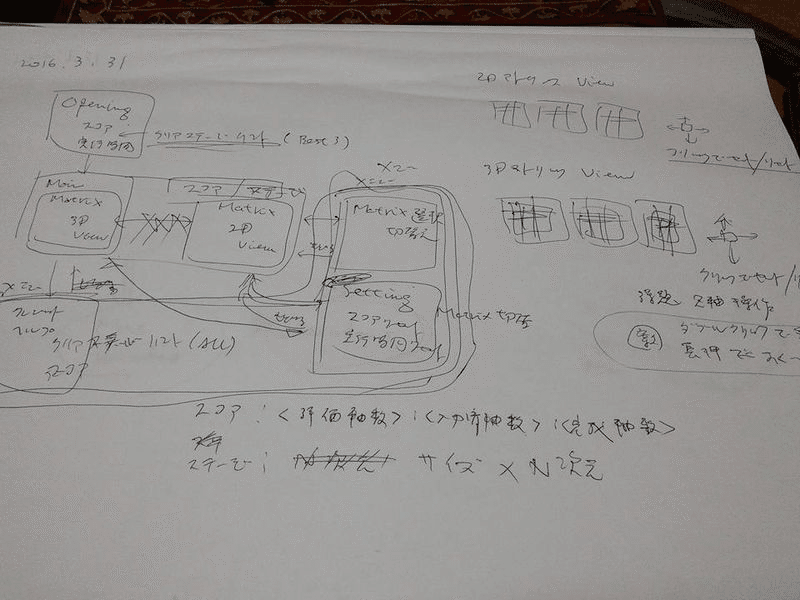 2016.3.31
Opening
スコア
実行時間
クリアステージ リスト (Best 3)
Main
Matrix
3D
View
Matrix
2D
View
スコア
メニュー
Matrix 選択
切替え
Setting
スコアクリア
実行時間クリア
Matrix 切替
メニュー
クレジット
ヘルプ
クリアステージ リスト (ALL)
スコア
2Dマトリクス View
フリックでセット/リセット
3Dマトリックス View
クリックでセット/リ
課題 Z軸 操作
案
ダブルクリックで
長押しで
スコア:<評価軸数>:<入力済軸数>:<完成軸数>
ステージ: サイズ × N次元